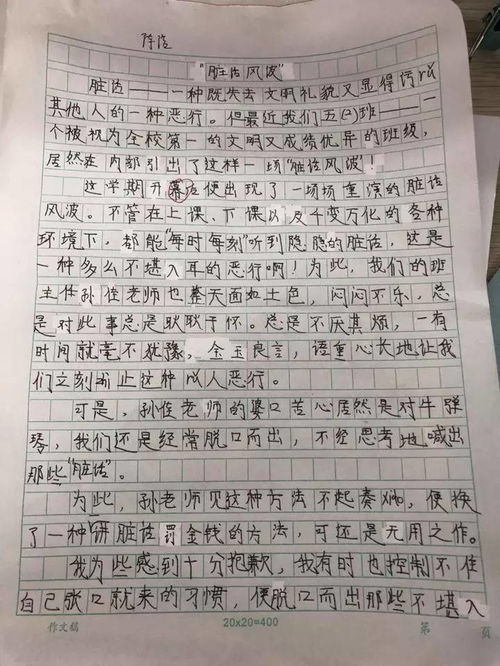 陈浩
“脏话风波”
脏话———一种既失去文明礼貌又显得污
其他人的一种恶行。但最近我们五(2)班——一
个被视为全校第一的文明又成绩优异的班级,
居然在内部引出了这样一场“脏话风波!
这学期开幕后便出现了一场场重演的脏话
风波。不管在上课、下课以及千变万化的各种
环境下,都能“每时每刻”听到隐隐的脏话,这是
一种多么不堪入耳的恶行啊!为此,我们的班
主任孙佳老师也整天面如土色,闷闷不乐,总
是对此事总是耿耿于怀。总是不厌其烦,一有
时间就毫不犹豫,金玉良言,语重心长地让我
们立刻制止这种恶行。
可是,孙佳老师的婆口苦心居然是对牛弹
琴,我们还是经常脱口而出,不经思考地喊出
那些“脏话”。
为此,孙老师见这种方法不起奏效,便换
了一种讲脏话罚金钱的方法,可还是无用之作。
我为些感到十分抱歉,我有时也控制不住
自己张口就来的习惯,便脱口而出那些不堪入
作文稿 20×20=400 第 页